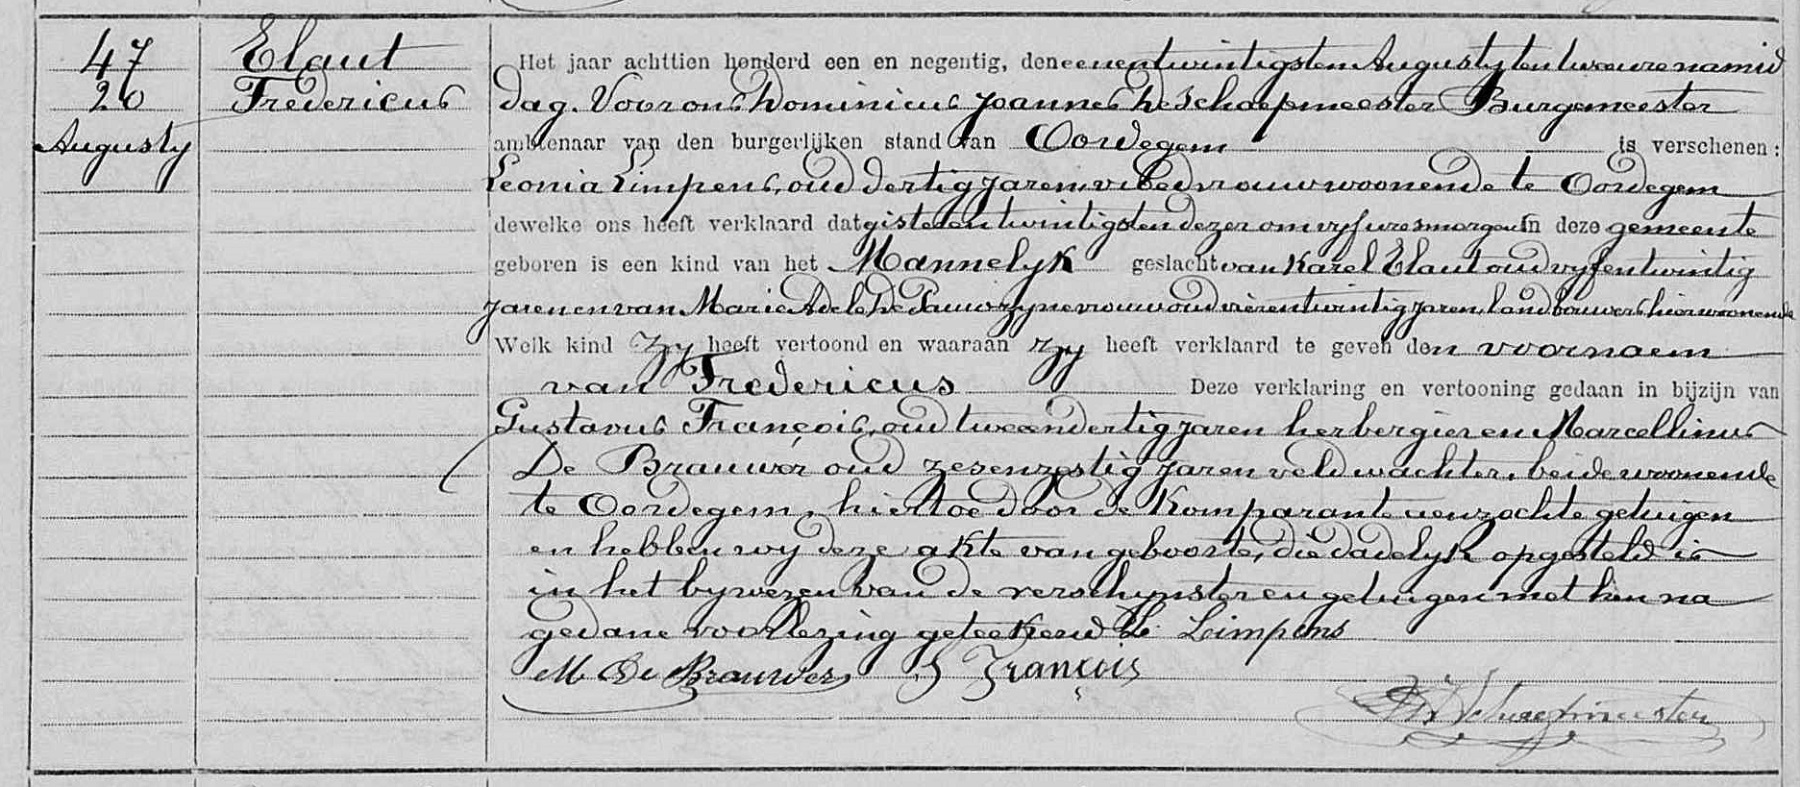 47
20
Augusty
Elaut
Fredericus
Het jaar achttien honderd een en negentig, den eenentwintigsten Augusty ten twee ure namid
dag. Voor ons Dominicus Joannes De Schaepmeester Burgemeester
ambtenaar van den burgerlijken stand van Oordegem is verschenen:
Leonia Limpens, oud dertig jaren, vroedvrouw woonende te Oordegem
dewelke ons heeft verklaard dat gisteren twintigsten dezer om vyf ure smorgens in deze gemeente
geboren is een kind van het Mannelyk geslacht van Karel Elaut oud vyfentwintig
jaren en van Marie Adele De Pauw zyne vrouw oud vierentwintig jaren, landbouwers hier woonende
Welk kind zy heeft vertoond en waaraan zy heeft verklaard te geven den voornaem
van Fredericus Deze verklaring en vertooning gedaan in bijzijn van
Gustavus François, oud tweeendertig jaren herbergier en Marcellinus
De Brauwer oud zesenzestig jaren veldwachter, beide woonende
te Oordegem, hiertoe door de Komparante verzochte getuigen
en hebben wy deze akte van geboorte, die dadelyk opgesteld is
in het bywezen van de verschynster en getuigen met hun na
gedane voorlezing geteekend L. Limpens
M De Brauwer G François
De Schaepmeester